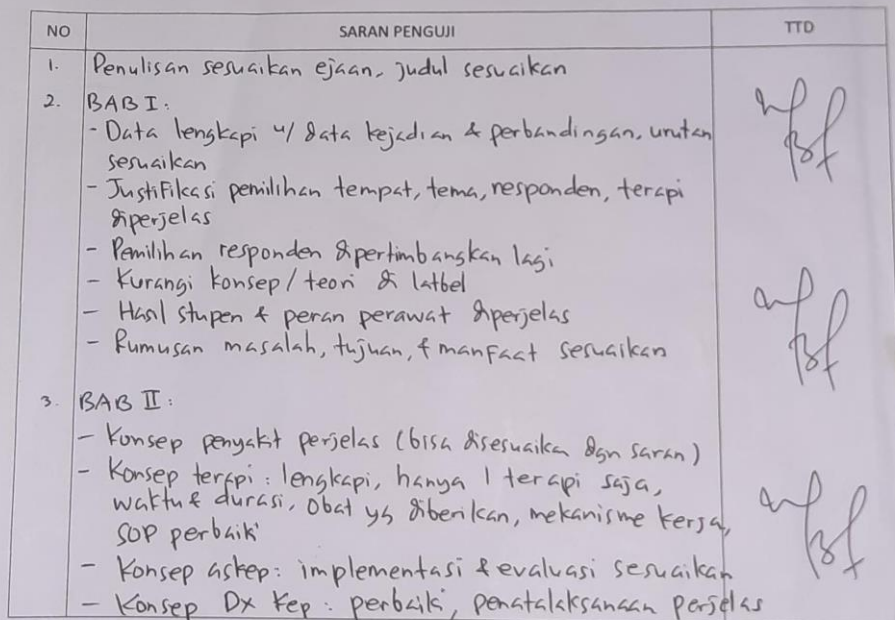 NO SARAN PENGUJI TTD
1. Penulisan sesuaikan ejaan, judul sesuaikan
2. BAB I:
- Data lengkapi u/ data kejadian & perbandingan, urutan
sesuaikan
- Justifikasi pemilihan tempat, tema, responden, terapi
diperjelas
- Pemilihan responden dipertimbangkan lagi
- Kurangi konsep/teori di latbel
- Hasil stupen & peran perawat diperjelas
- Rumusan masalah, tujuan, & manfaat sesuaikan
3. BAB II:
- Konsep penyakit perjelas (bisa disesuaika dgn saran)
- Konsep terapi: lengkapi, hanya 1 terapi saja,
waktu & durasi, obat yg diberikan, mekanisme kerja,
SOP perbaiki
- Konsep askep: implementasi & evaluasi sesuaikan
- Konsep Dx Kep: perbaiki, penatalaksanaan perjelas